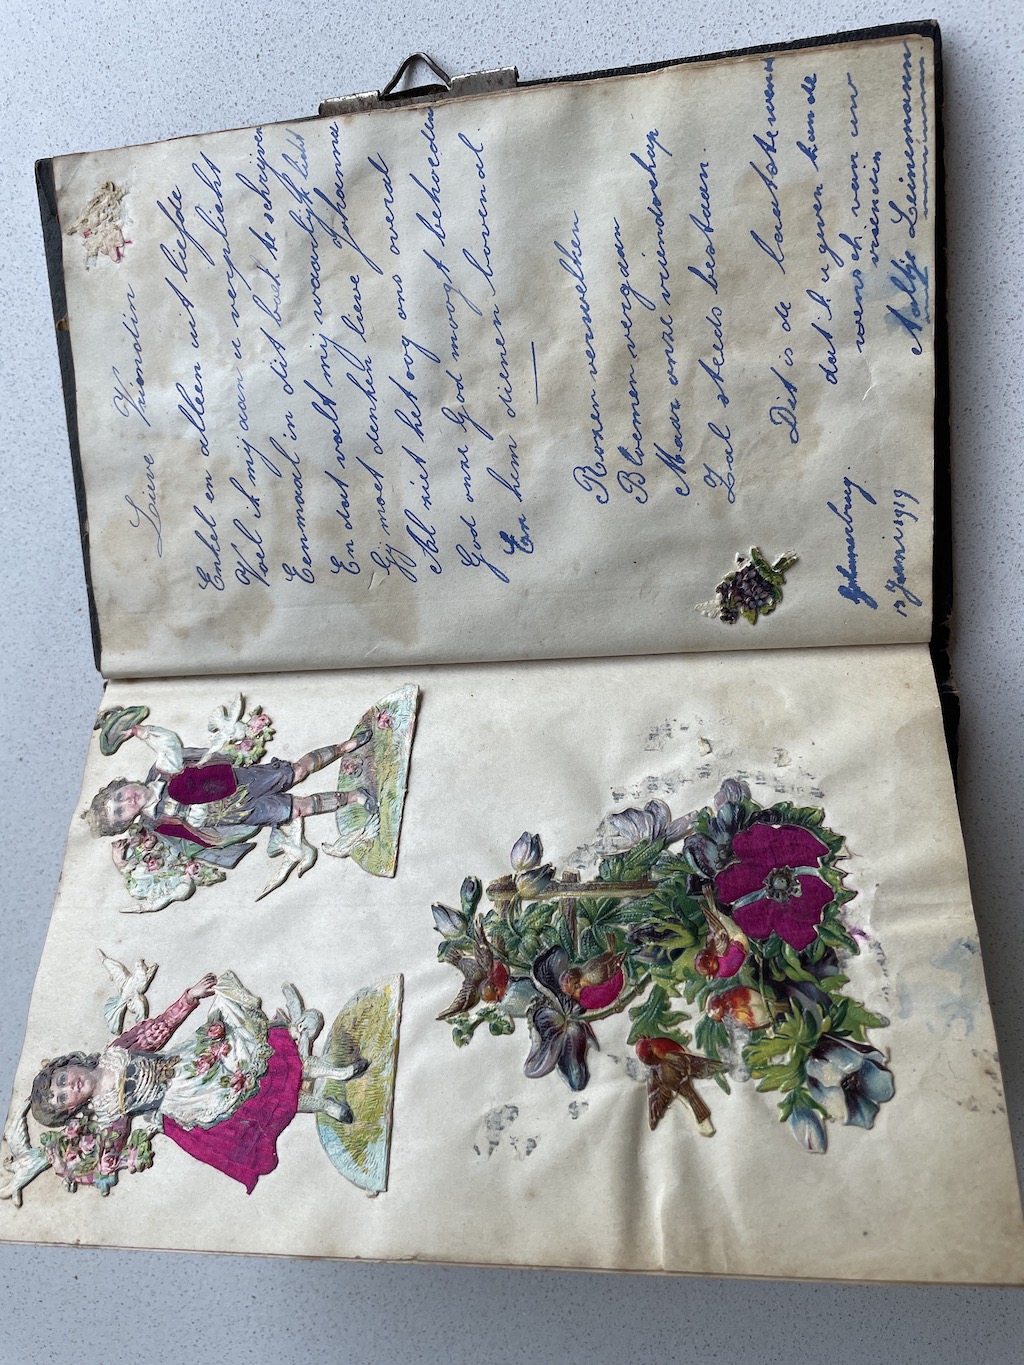 Lieve Vriendin
Enkel en alleen uit liefde
Voel ik mij aan u verplicht
Eenmaal in dit boek te schrijven
En dat valt mij waarlijk licht
Gij moet denken lieve Johanna
Al ziet het oog ons overal
God onze God moogt behoeden
En hem dienen bovenal.
Rozen verwelken
Bloemen vergaan
Maar onze vriendschap
Zal steeds bestaan.
Dit is de laatste wensch
dat ik u geven kan de
wensch van uw
vriendin
Aaltje Leinemann
13 Juni 1919